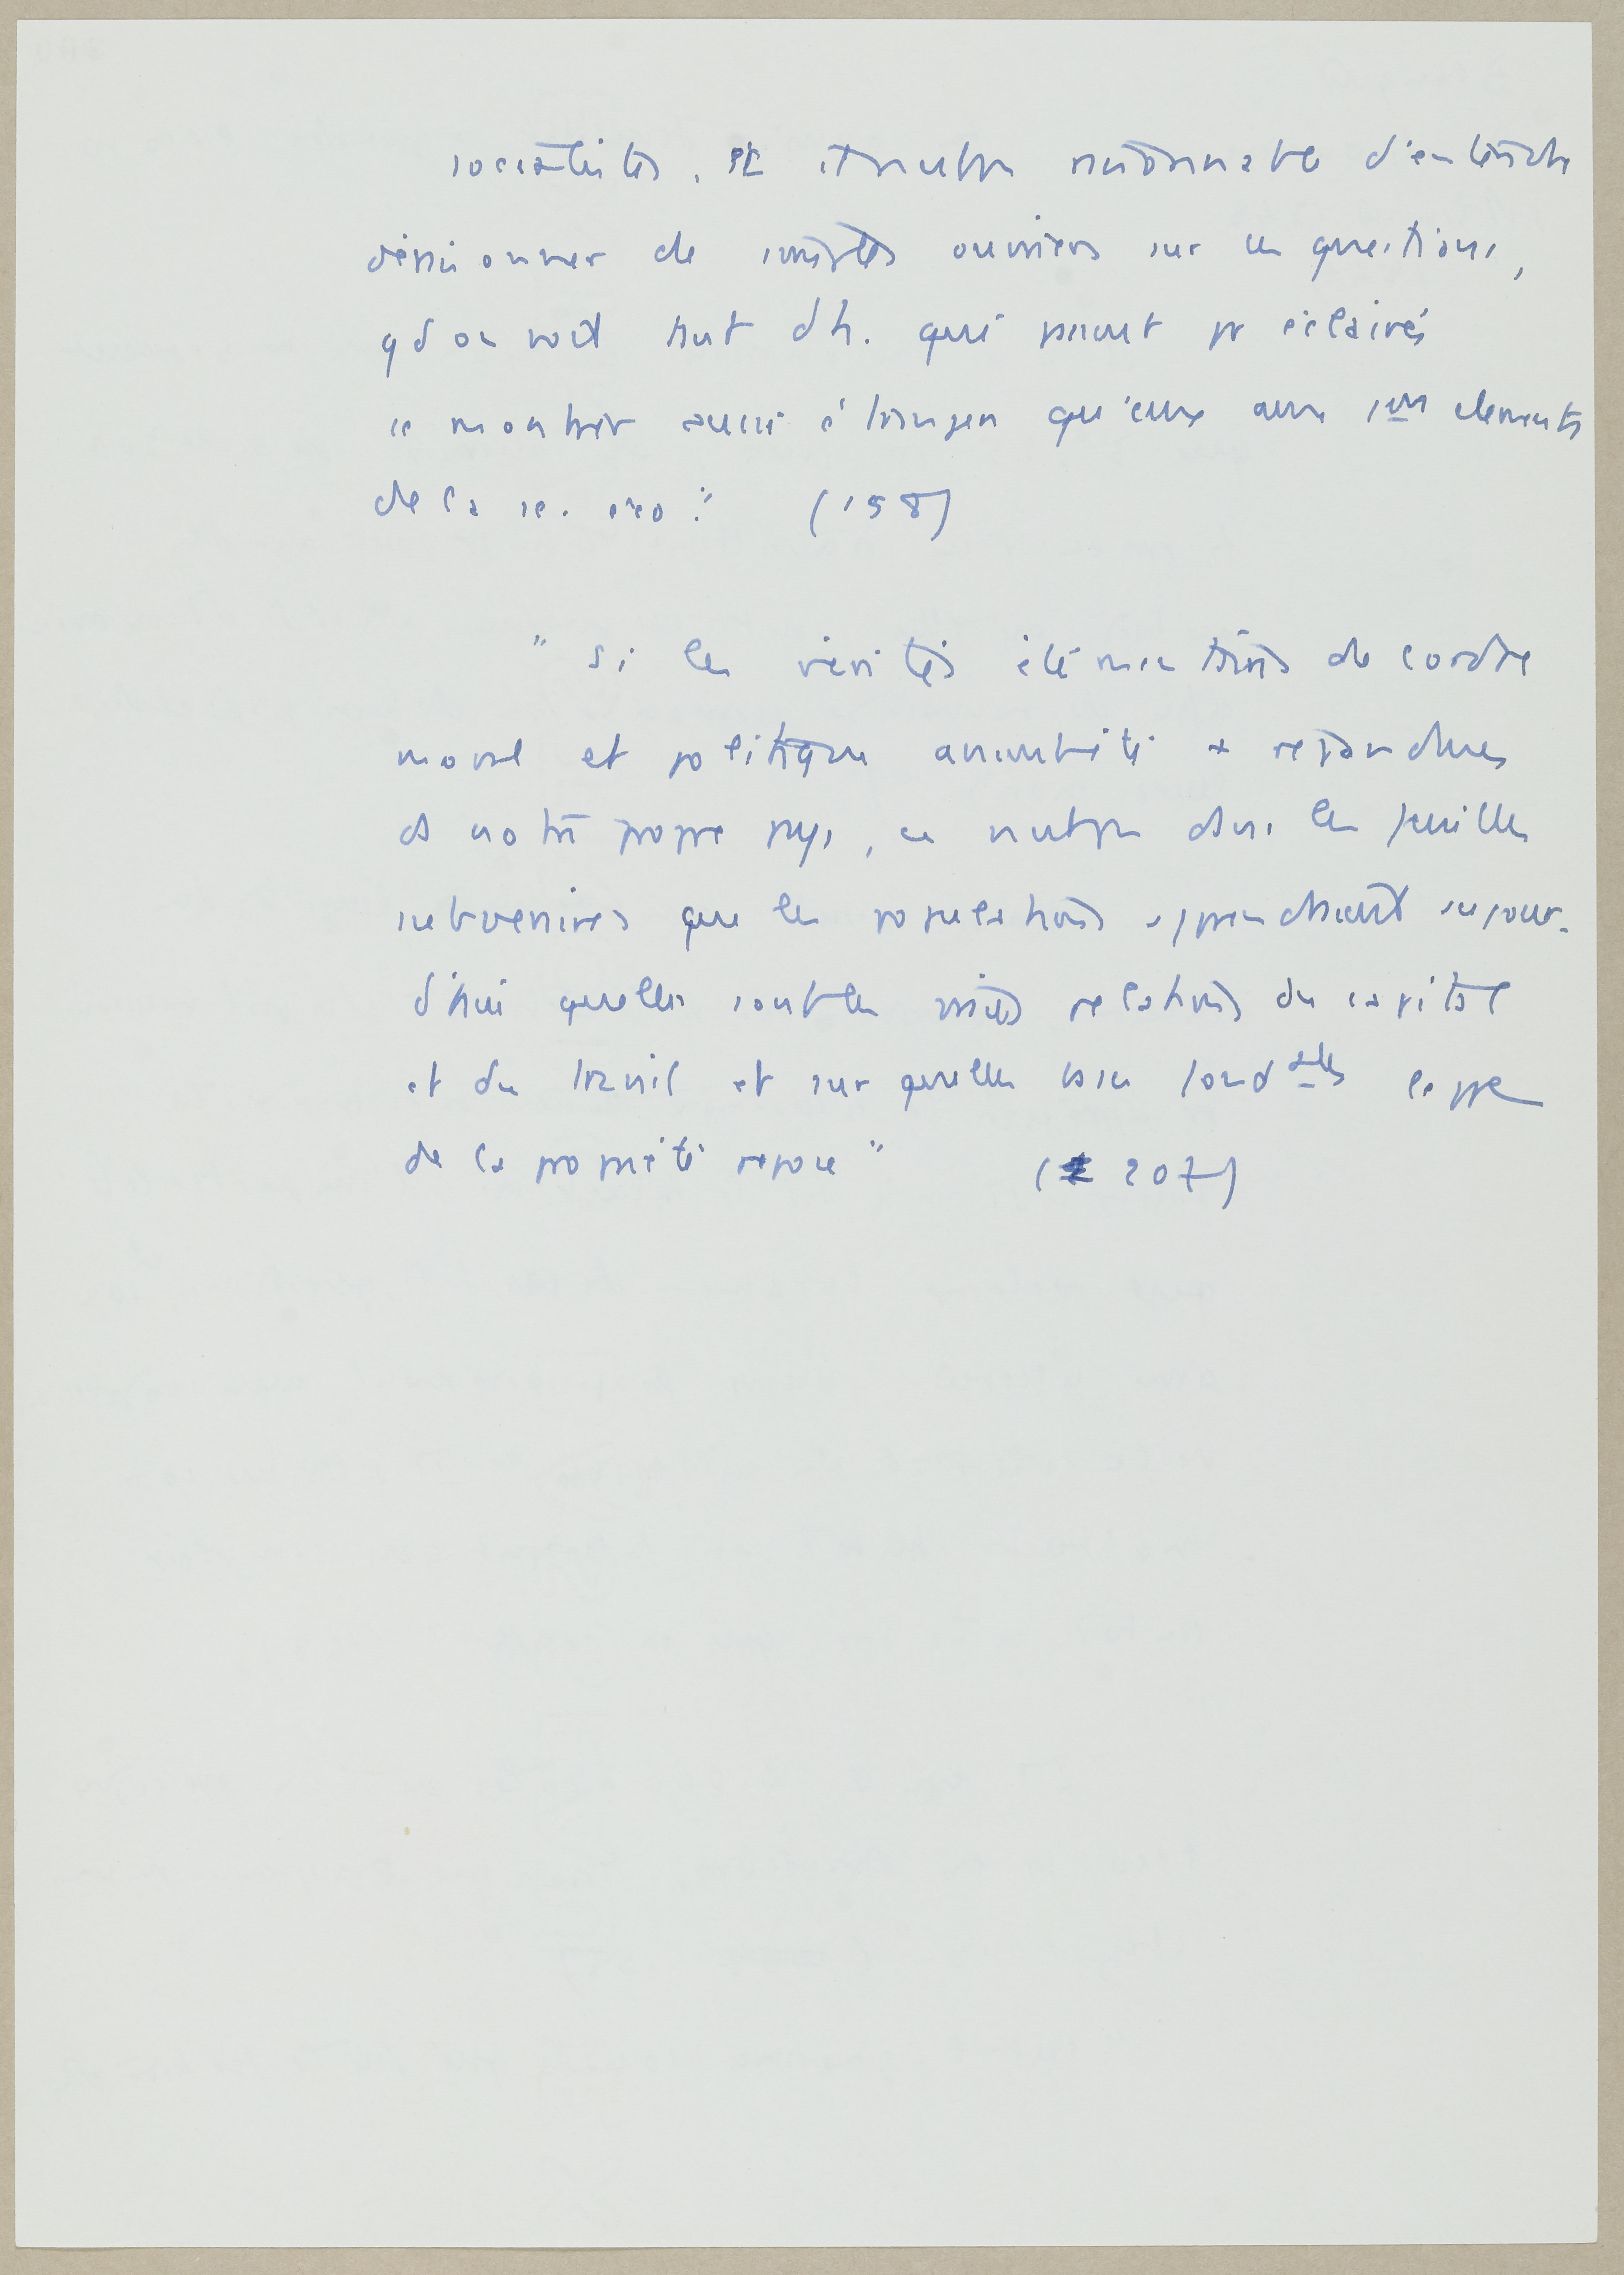 socialistes. Et il n'est pas raisonnable d'entendre
déraisonner de simples ouvriers sur ces questions,
qd on voit tant d'h. qui passent pr éclairés
se montrer aussi étrangers qu'eux aux 1ers elements
de la sc. éco." (158)
" Si les vérités élémentaires de l'ordre
moral et politique avaient été + répandues
ds notre propre pays, ce n'est pas dans les feuilles
subversives que les populations apprendraient aujour-
d'hui quelles sont les vraies relations du capital
et du travail et sur quelles bases fondales le ppe
de la propriété repose" (207)